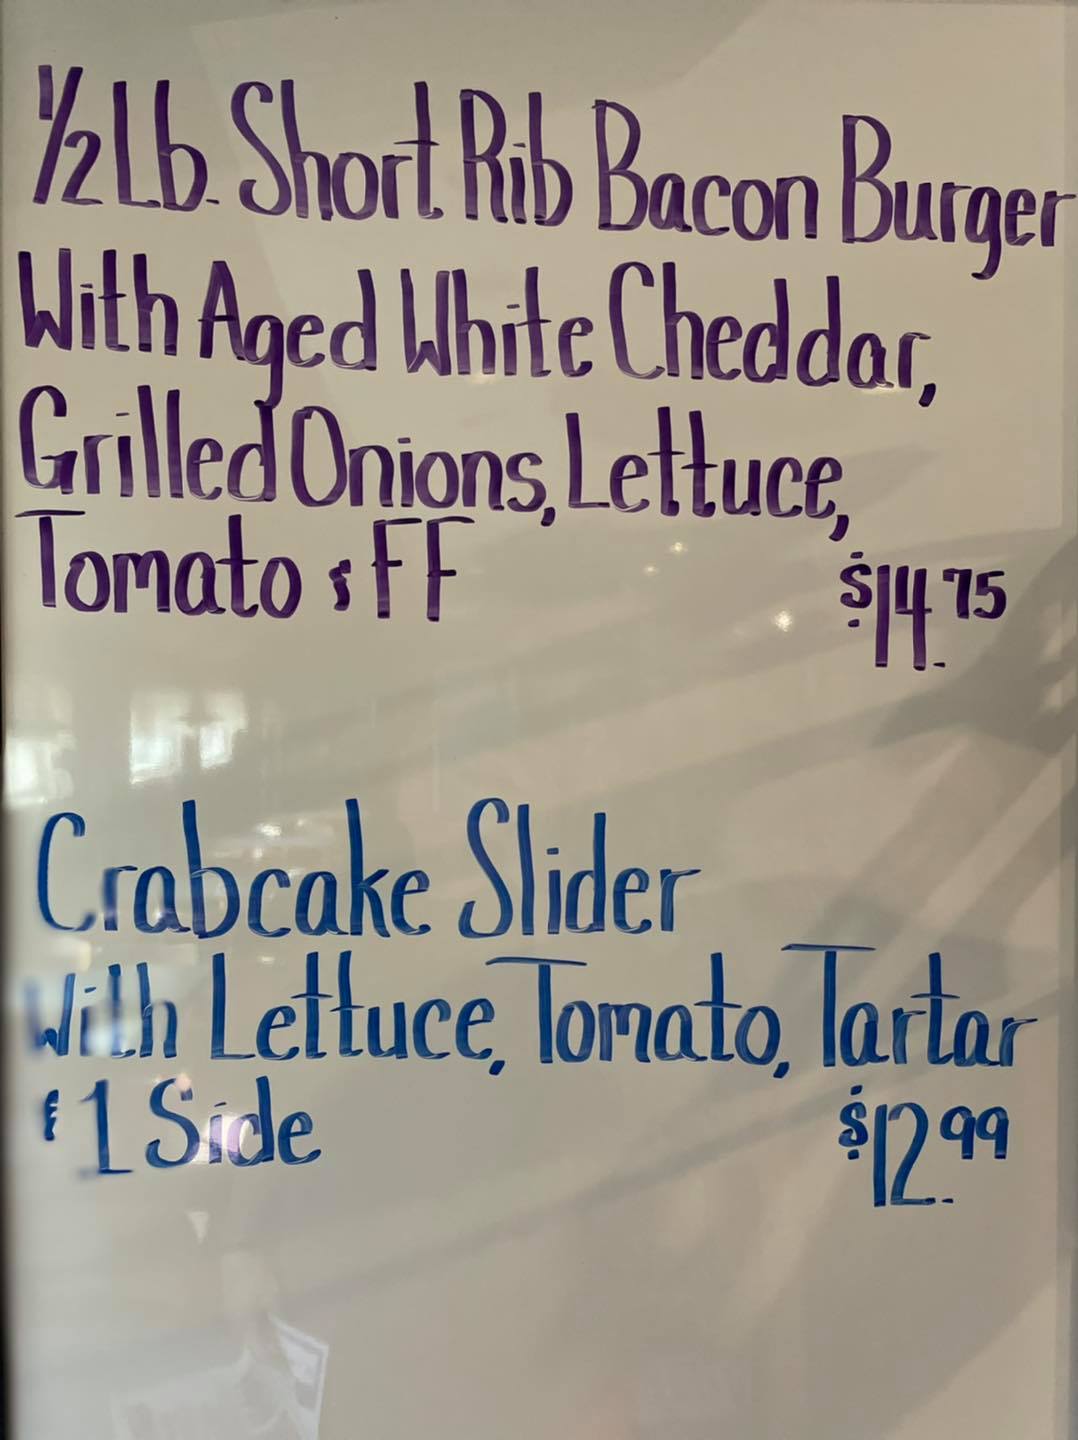 1/2 Lb. Short Rib Bacon Burger
With Aged White Cheddar,
Grilled Onions, Lettuce,
Tomato & FF
$14.75
Crabcake Slider
With Lettuce, Tomato, Tartar
& 1 Side
$12.99